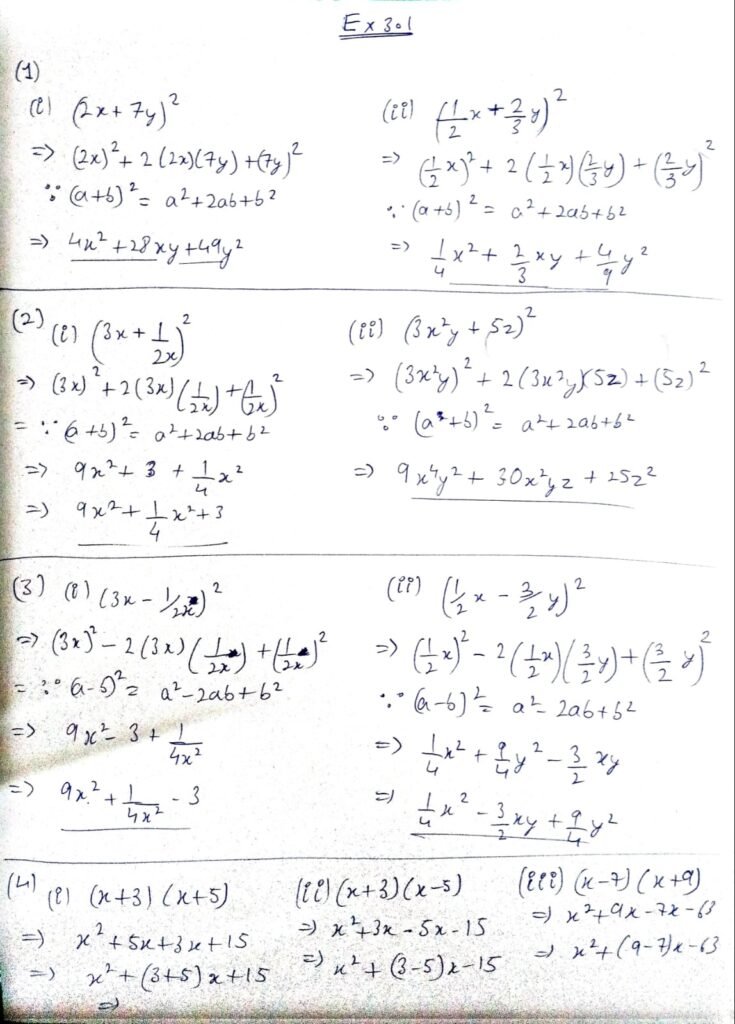 Ex 3.1
(1)
(i) (2x + 7y)²
=> (2x)² + 2(2x)(7y) + (7y)²
∵ (a+b)² = a²+2ab+b²
=> 4x² + 28xy + 49y²
(ii) (1/2 x + 2/3 y)²
=> (1/2 x)² + 2(1/2 x)(2/3 y) + (2/3 y)²
∵ (a+b)² = a²+2ab+b²
=> 1/4 x² + 2/3 xy + 4/9 y²
(2) (i) (3x + 1/2x)²
=> (3x)² + 2(3x)(1/2x) + (1/2x)²
= ∵ (a+b)² = a²+2ab+b²
=> 9x² + 3 + 1/4 x²
=> 9x² + 1/4 x² + 3
(ii) (3x²y + 5z)²
=> (3x²y)² + 2(3x²y)(5z) + (5z)²
∵ (a+b)² = a²+2ab+b²
=> 9x⁴y² + 30x²yz + 25z²
(3) (i) (3x - 1/2x)²
=> (3x)² - 2(3x)(1/2x) + (1/2x)²
= ∵ (a-b)² = a²-2ab+b²
=> 9x² - 3 + 1/4x²
=> 9x² + 1/4x² - 3
(ii) (1/2 x - 3/2 y)²
=> (1/2 x)² - 2(1/2 x)(3/2 y) + (3/2 y)²
∵ (a-b)² = a² - 2ab+b²
=> 1/4 x² + 9/4 y² - 3/2 xy
=> 1/4 x² - 3/2 xy + 9/4 y²
(4) (i) (x+3)(x+5)
=> x² + 5x + 3x + 15
=> x² + (3+5)x + 15
=>
(ii) (x+3)(x-5)
=> x² + 3x - 5x - 15
=> x² + (3-5)x - 15
(iii) (x-7)(x+9)
=> x² + 9x - 7x - 63
=> x² + (9-7)x - 63